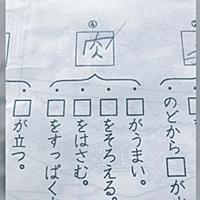 のどから□が
④
□がうまい。
□をそろえる。
□をはさむ。
□をすっぱく
□が立つ。